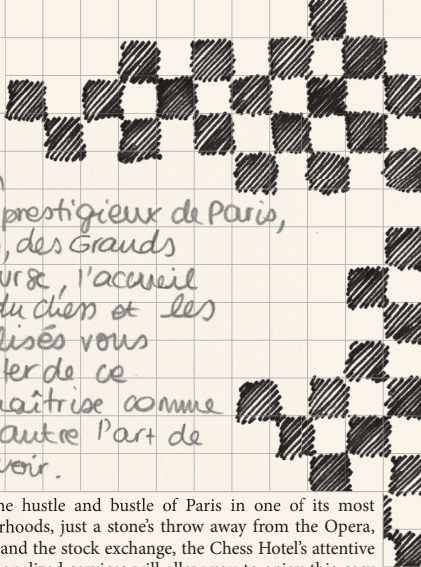 prestigieux de Paris,
, des Grands
urse, l'accueil
du chess et les
lisés vous
ter de ce
maîtrise comme
autre l'art de
voir.
he hustle and bustle of Paris in one of its most
rhoods, just a stone's throw away from the Opera,
and the stock exchange, the Chess Hotel's attentive